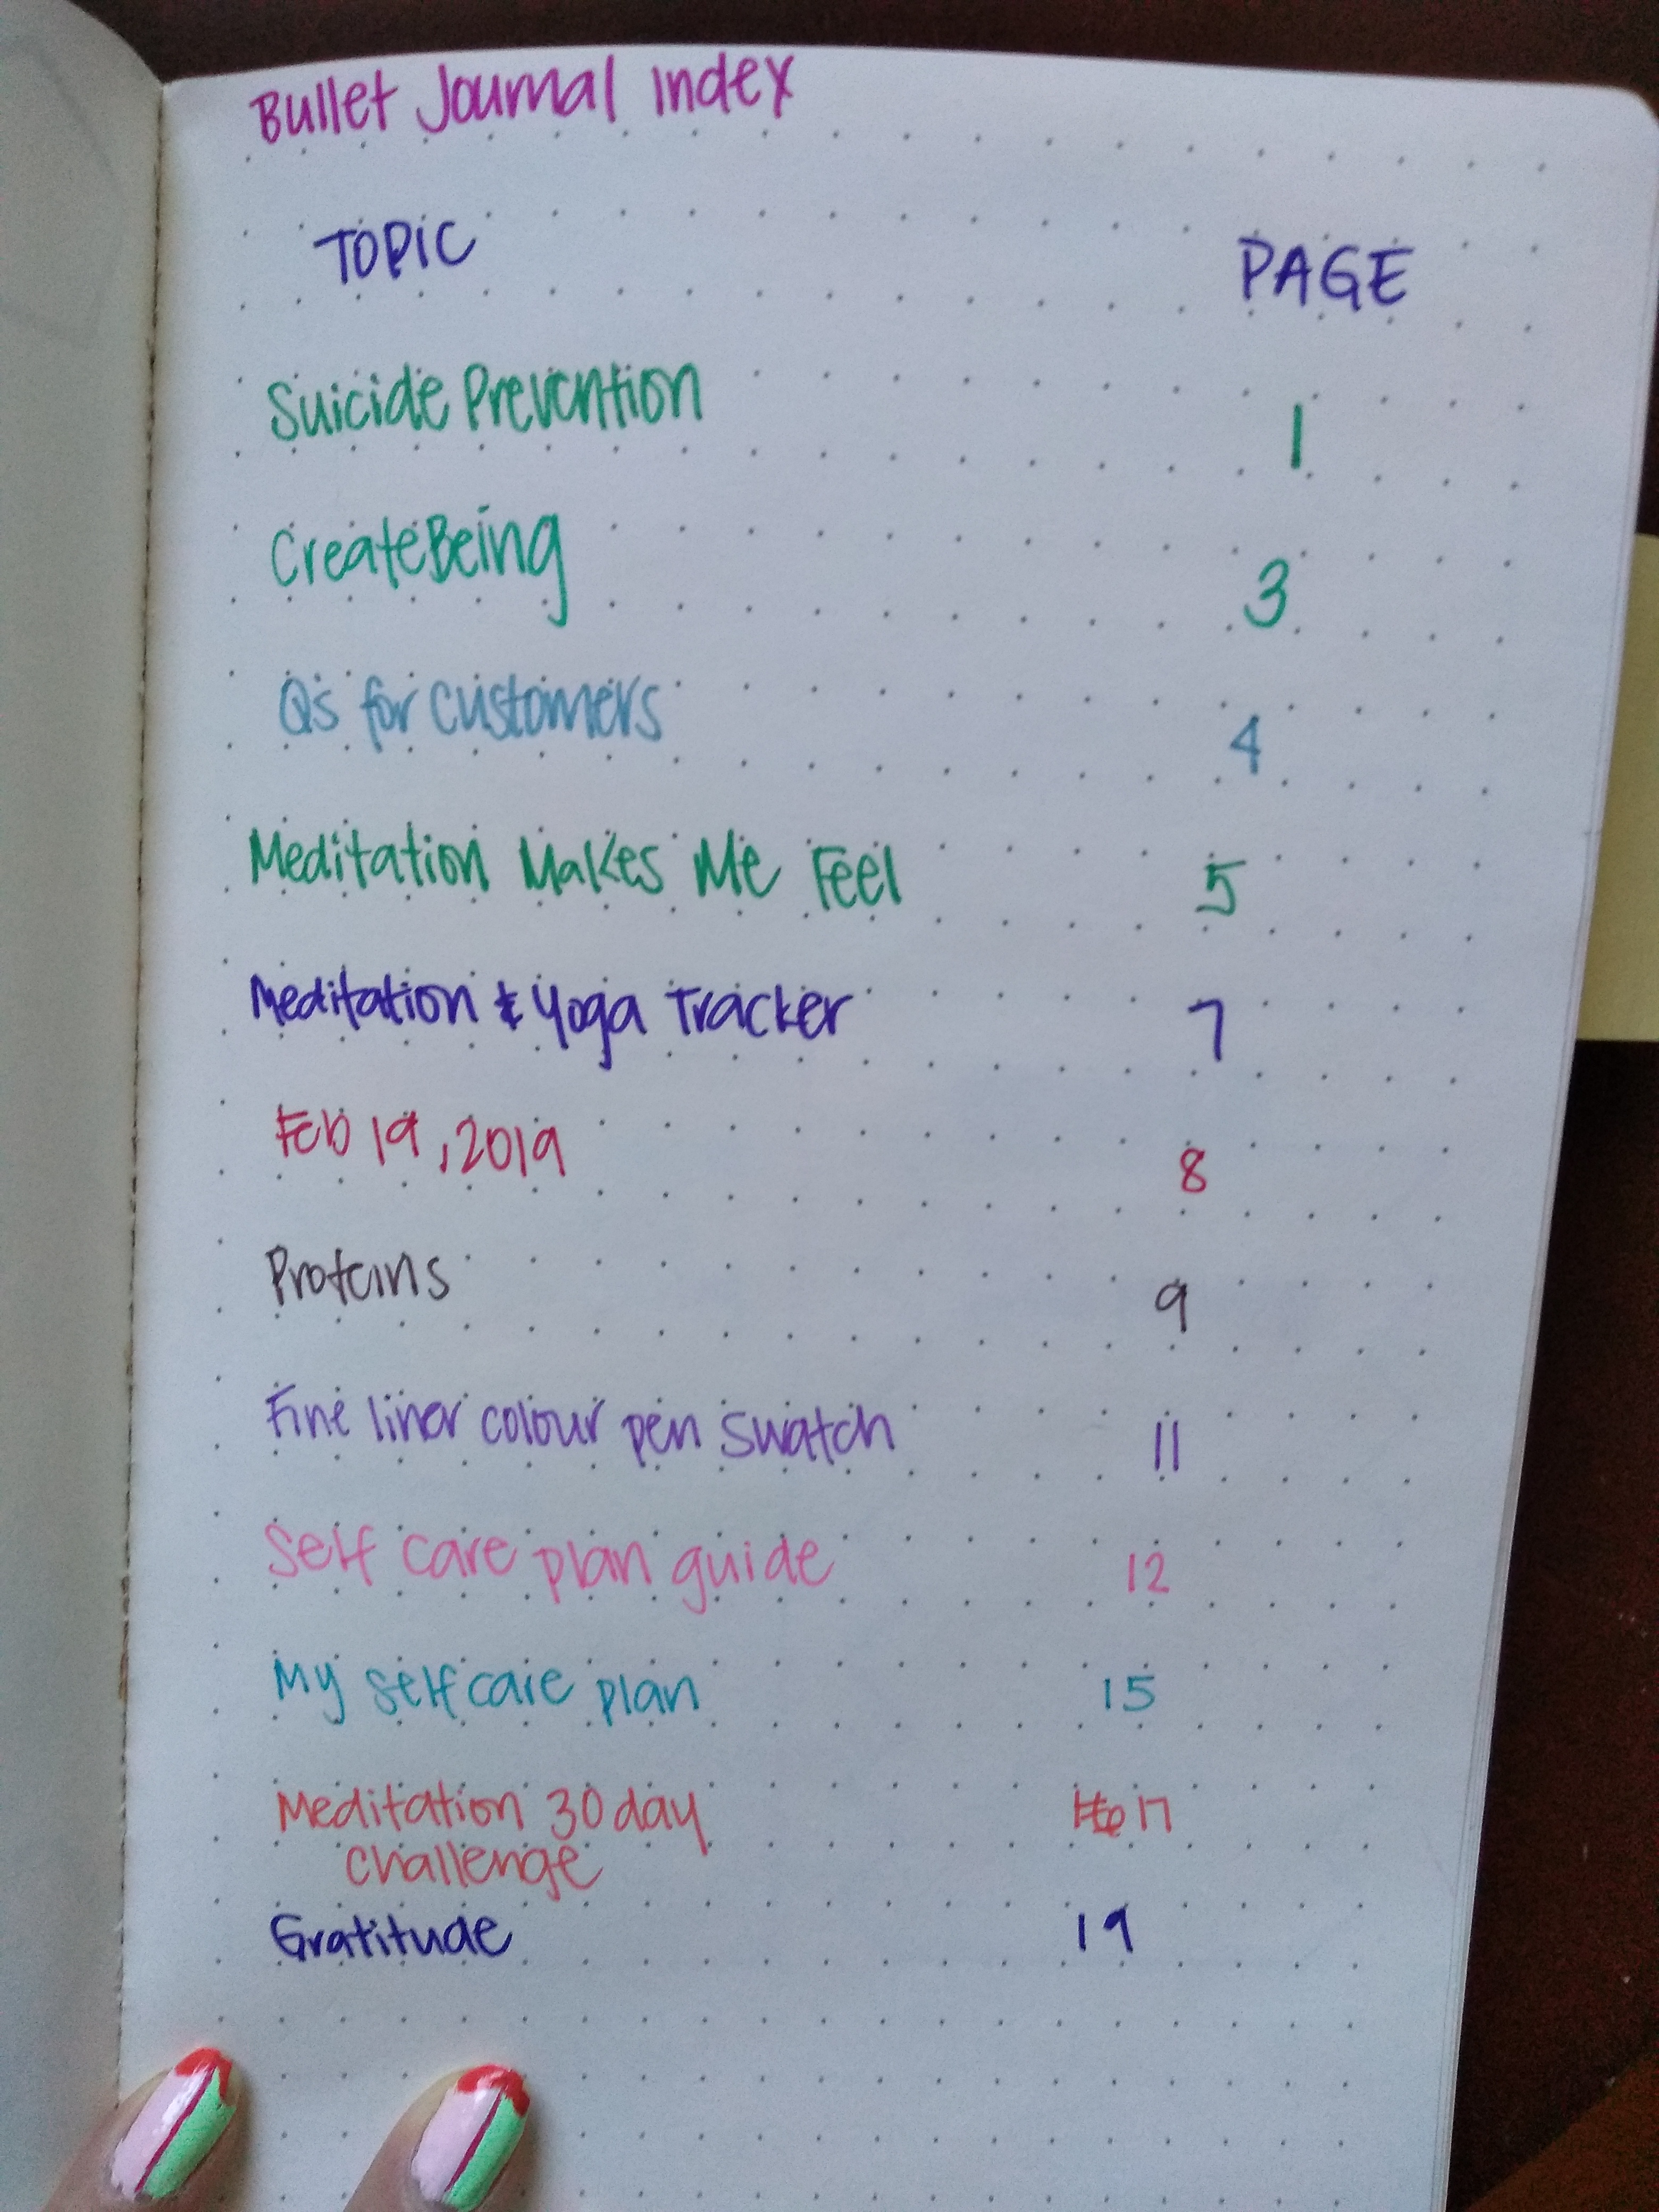 Bullet Journal Index
TOPIC PAGE
Suicide Prevention 1
CreateBeing 3
Qs for customers 4
Meditation Makes Me Feel 5
Meditation & Yoga Tracker 7
Feb 19, 2019 8
Proteins 9
Fine liner colour pen swatch 11
Self care plan guide 12
My self care plan 15
Meditation 30 day 17
challenge
Gratitude 19